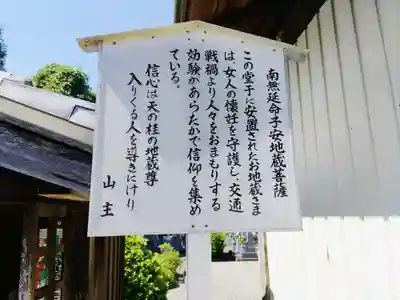 南無延命子安地蔵菩薩
この堂于に安置されたお地蔵さま
は、女人の懐妊を守護し、交通
戦禍より人々をおまもりする
効験があらたかで信仰を集め
ている。
信心は天の桂の地蔵尊
入りくる人を導きにけり
山主